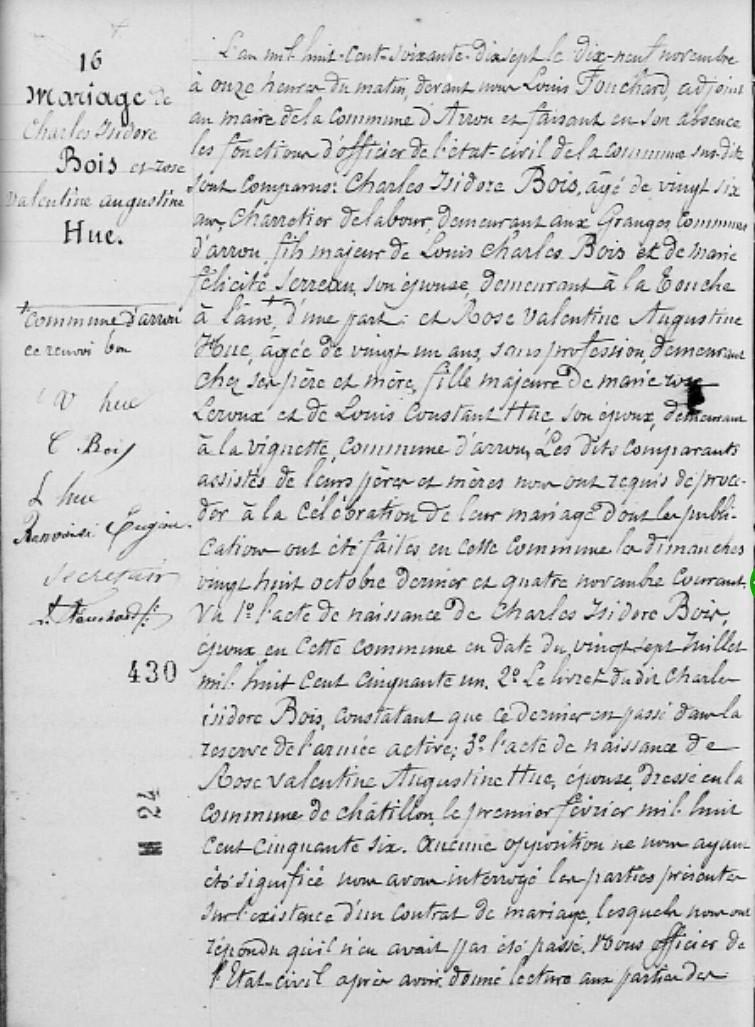 16
Mariage de
Charles Isidore
Bois et rose
valentine augustine
Hue.
+commune d'arrou
ce renvoi bon
V hue
C. Bois
L hue
Renvoisé Eugène
Secrétaire
L. Fouchard
430
24
L'an mil-huit-cent-soixante-dixsept le dix-neuf novembre
à onze heures du matin, devant nous Louis Fouchard, adjoint
au maire de la Commune d'Arrou et faisant en son absence
les fonctions d'officier de l'état-civil de la commune sus-dite
sont comparus: Charles Isidore Bois, âgé de vingt six
ans, Charretier de labour, demeurant aux Granges, Commune
d'arrou, fils majeur de Louis Charles Bois et de marie
félicité Serreau, son épouse, demeurant à la Touche
à l'âne,+ d'une part: et Rose Valentine Augustine
Hue, âgée de vingt un ans, sans profession, demeurant
chez ses père et mère, fille majeure de marie rose
Leroux et de Louis Constant Hue son époux, demeurant
à la vignette, commune d'arrou, Les dits comparants
assistés de leurs pères et mères nous ont requis de procé-
der à la célébration de leur mariage dont les publi-
cations ont été faites en cette commune les dimanches
vingt huit octobre dernier et quatre novembre courant.
Vu 1º l'acte de naissance de Charles Isidore Bois,
époux en cette commune en date du vingt sept Juillet
mil-huit cent cinquante un. 2º Le livret du dit Charles
isidore Bois, constatant que ce dernier est passé dans la
reserve de l'armée active; 3º l'acte de naissance de
Rose valentine Augustine Hue, épouse, dressé en la
commune de châtillon, le premier février mil-huit
cent cinquante six. Aucune opposition ne nous ayant
été signifié nous avons interrogé les parties présentes
sur l'existence d'un contrat de mariage, lesquels nous ont
répondu qu'il n'en avait pas été passé. Nous officier de
l'Etat-civil après avoir donné lecture aux parties des